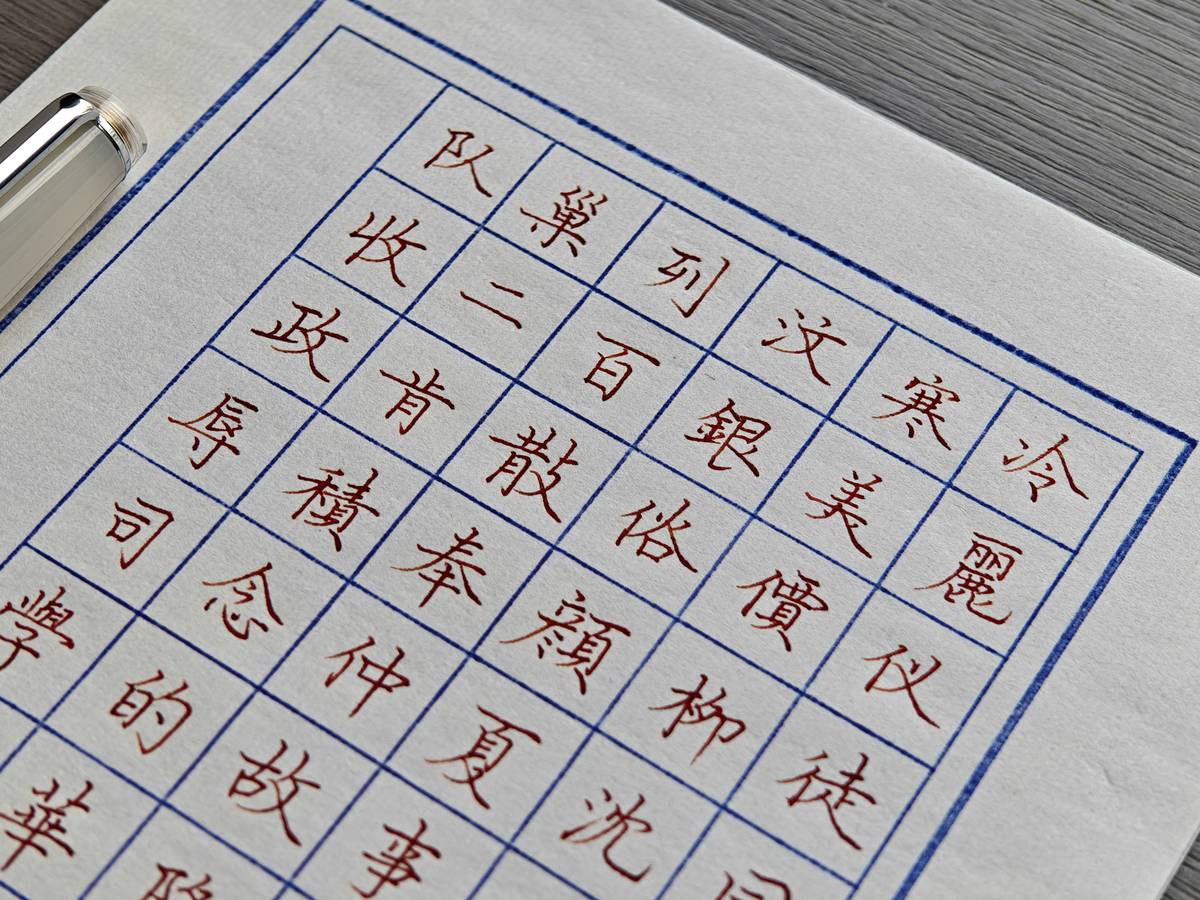 冷麗仪徒
寒美價柳沈
汶銀俗顔夏事
列百散奉仲故
巢二肯積念的華
队收政辱司學